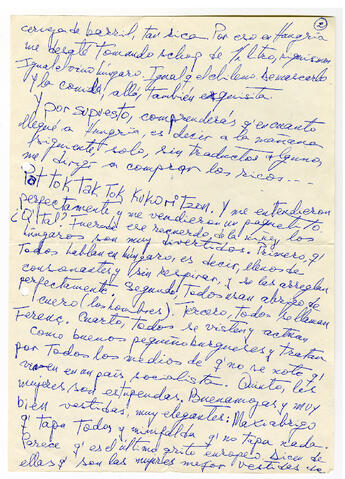 cerveza de barril, tan rica. Por eso en Hungría
me desaté tomando schop de 1/2 litro,
Igual el vino húngaro. Igual q' el chileno
y la comida, allá, también exquisita.
Y por supuesto, comprenderás q' en cuanto
llegué a Hungría, es decir a la mañana
siguiente, solo, sin traductor alguno,
me dirigí a comprar los ricos...
Pat tok tak tok kukoritzen. Y me entendieron
perfectamente y me vendieron un paquetito.
¿Q' tal? Fuera de ese recuerdo, de la y los
húngaros son muy divertidos. Primero, q'
Todos hablan en húngaro, es decir, llenos de
consonantes y sin respirar, y se las arreglan
perfectamente. Segundo, Todos usan abrigo de
cuero (los hombres). Tercero, Todos se llaman
Ferenç. Cuarto, Todos se visten y actúan
como buenos pequeños burgueses y tratan
por Todos los medios de q' no se note q'
viven en un país socialista. Quinto, las
mujeres son estupendas. Buenamozas y muy
bien vestidas, muy elegantes: Maxiabrigo
q' tapa Todo y minifalda q' no tapa nada.
Parece q' es el último grito europeo. Dicen de
ellas q' son las mujeres mejor vestidas de